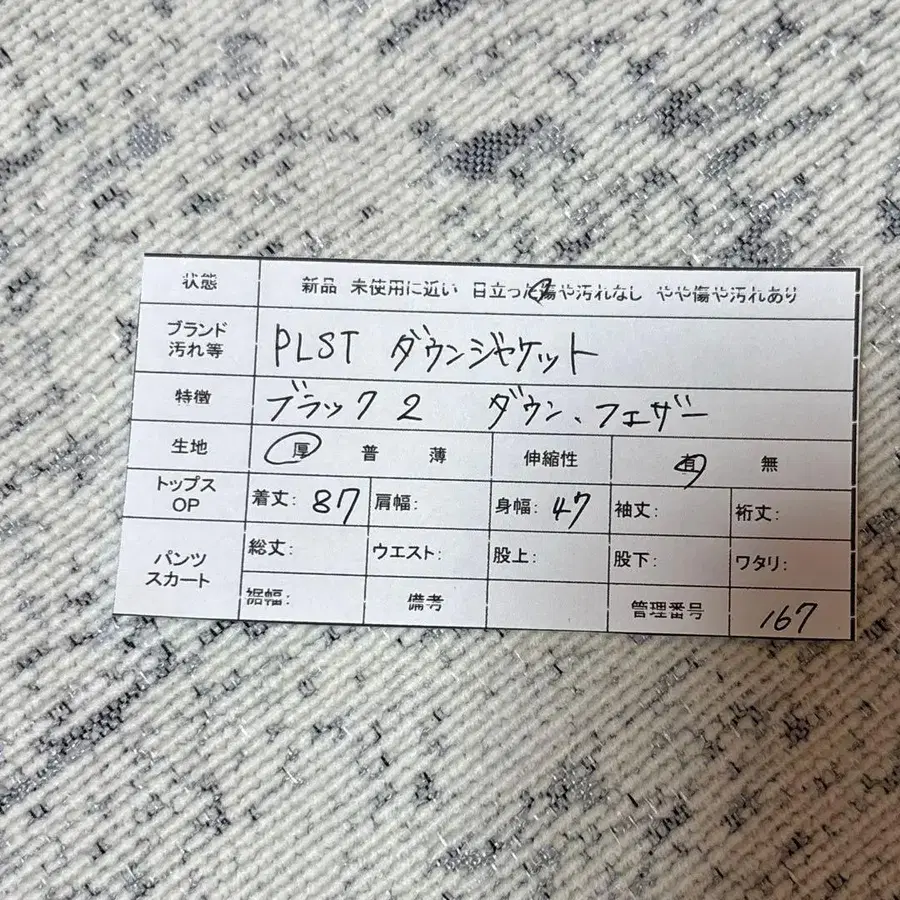 状態 新品 未使用に近い 目立った傷や汚れなし やや傷や汚れあり
ブランド
汚れ等
PLST ダウンジャケット
特徴 ブラック 2 ダウン、フェザー
生地 厚 普 薄 伸縮性 有 無
トップス
OP
着丈: 87 肩幅: 身幅: 47 袖丈: 裄丈:
パンツ
スカート
総丈: ウエスト: 股上: 股下: ワタリ:
裾幅: 備考 管理番号 167